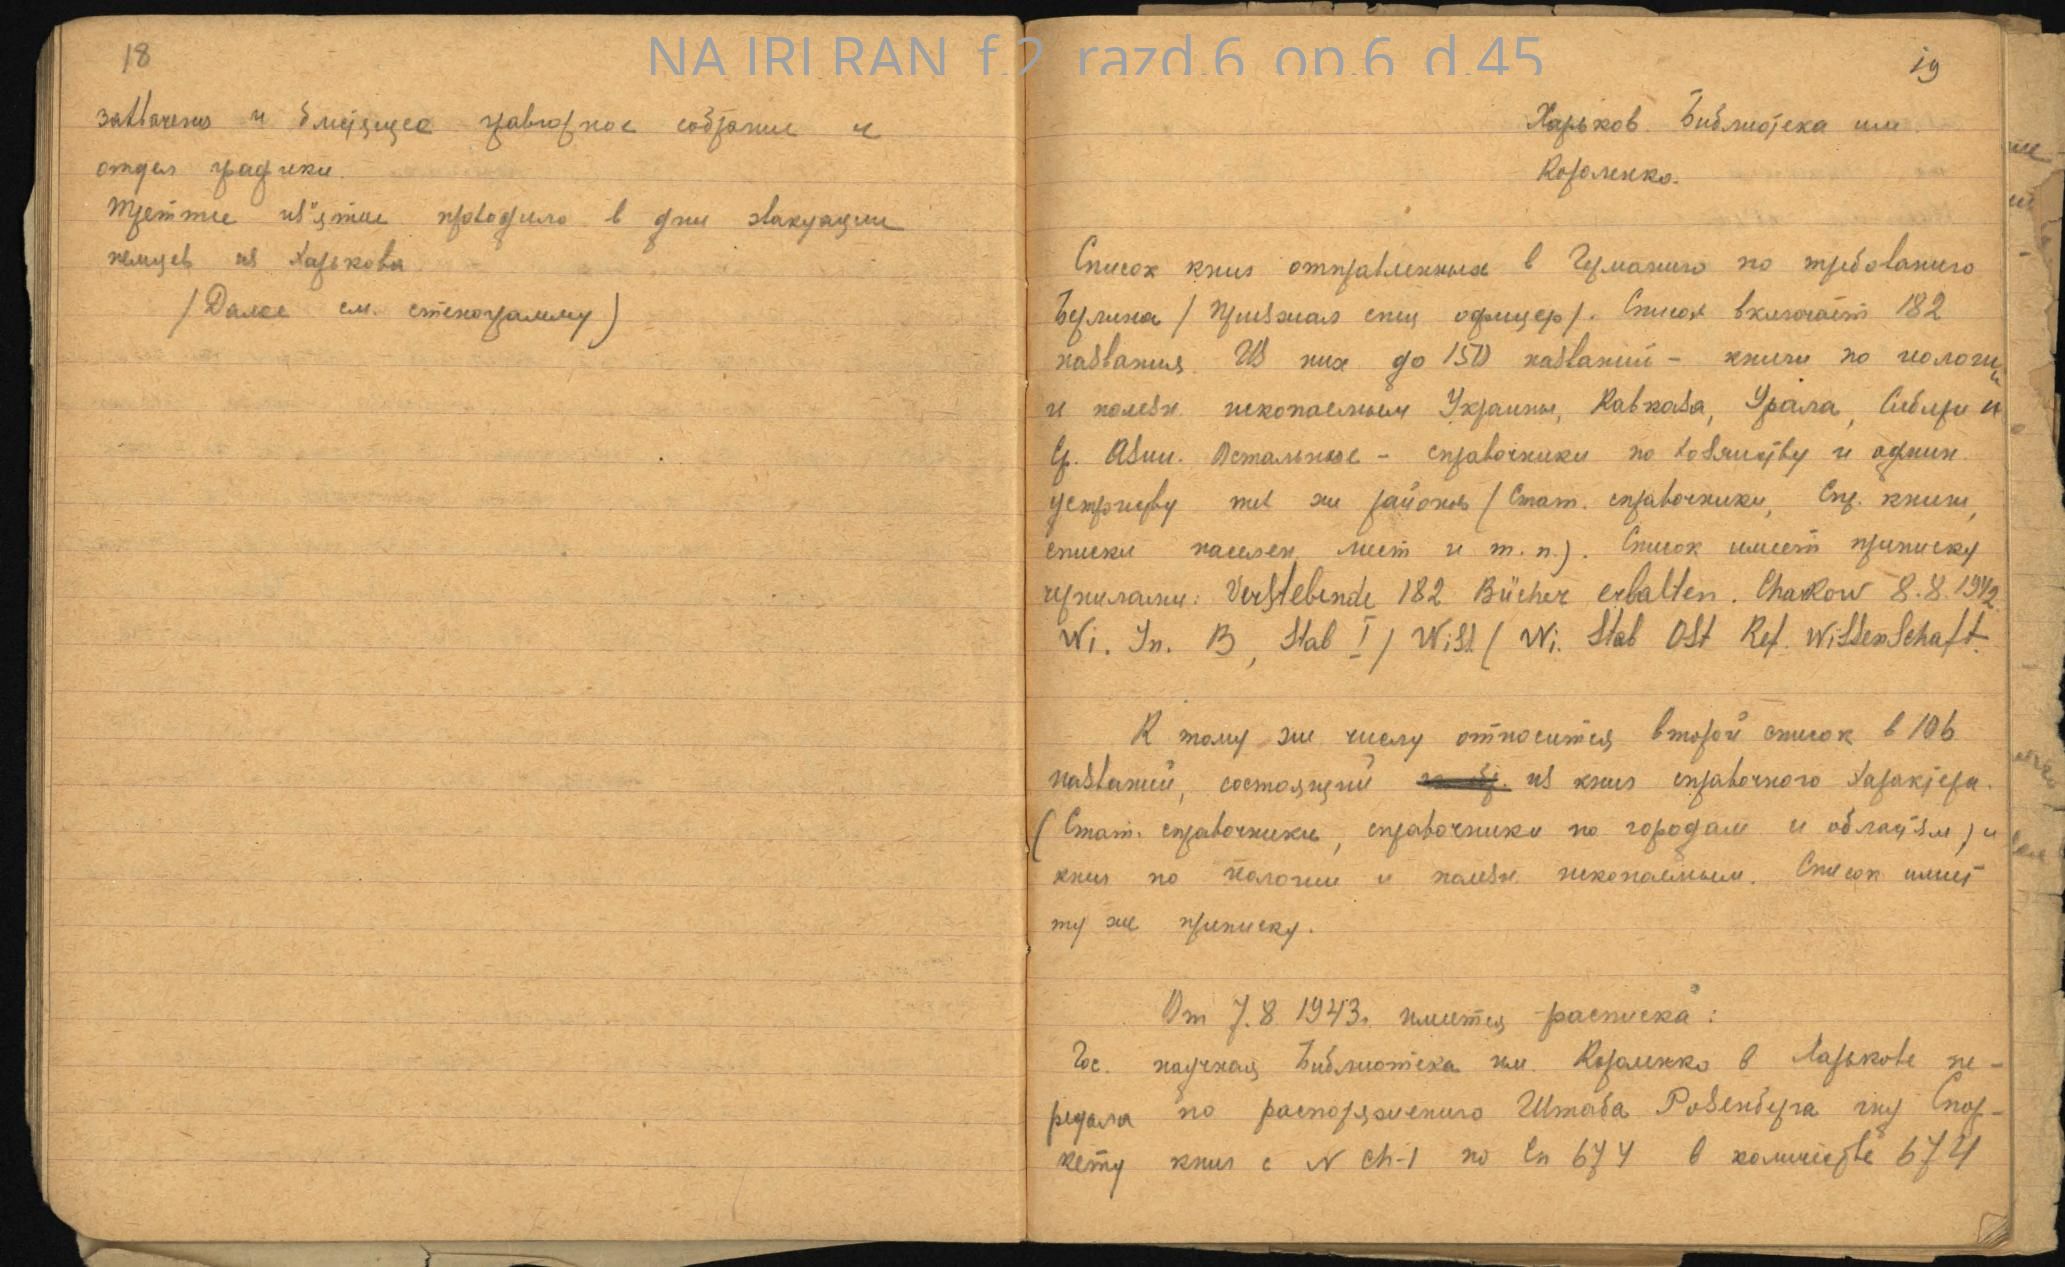 NA IRI RAN f.2 razd.6 op.6 d.45
18
и блестящее гравюрное собрание и
отдел графики.
Третье из"ятие проводило в дни эвакуации
немцев из Харькова
(Далее см. стенограмму)
19
Харьков. Библиотека им.
Короленко.
Список книг отправленных в Германию по требованию
Берлина / Приезжал спец офицер/. Список включает 182
названия. Из них до 150 названий - книги по геологии
и полезн. ископаемым Украины, Кавказа, Урала, Сибири и
Ср. Азии. Остальные - справочники по хозяйству и админ.
устройству тех же районов (Стат. справочники, Спр. книги,
списки населен. мест и т.п.). Список имеет приписку
чернилами: Verstebende 182 Bücher erbalten. Charkow 8.8.1942.
Wi. Jn. B, Stab I / Wist / Wi. Stab Ost Ref. Wissenschaft.
К тому же числу относится второй список в 106
названий, состоящий из книг справочного характера.
(Стат. справочники, справочники по городам и областям) и
книг по геологии и полезн. ископаемым. Список имеет
ту же приписку.
От 7.8.1943г. имеется расписка:
Гос. научная Библиотека им. Короленко в Харькове пе-
редала по распоряжению Штаба Розенберга гну Спор-
кету книг с N Ch-1 по Сh 674 в количестве 674